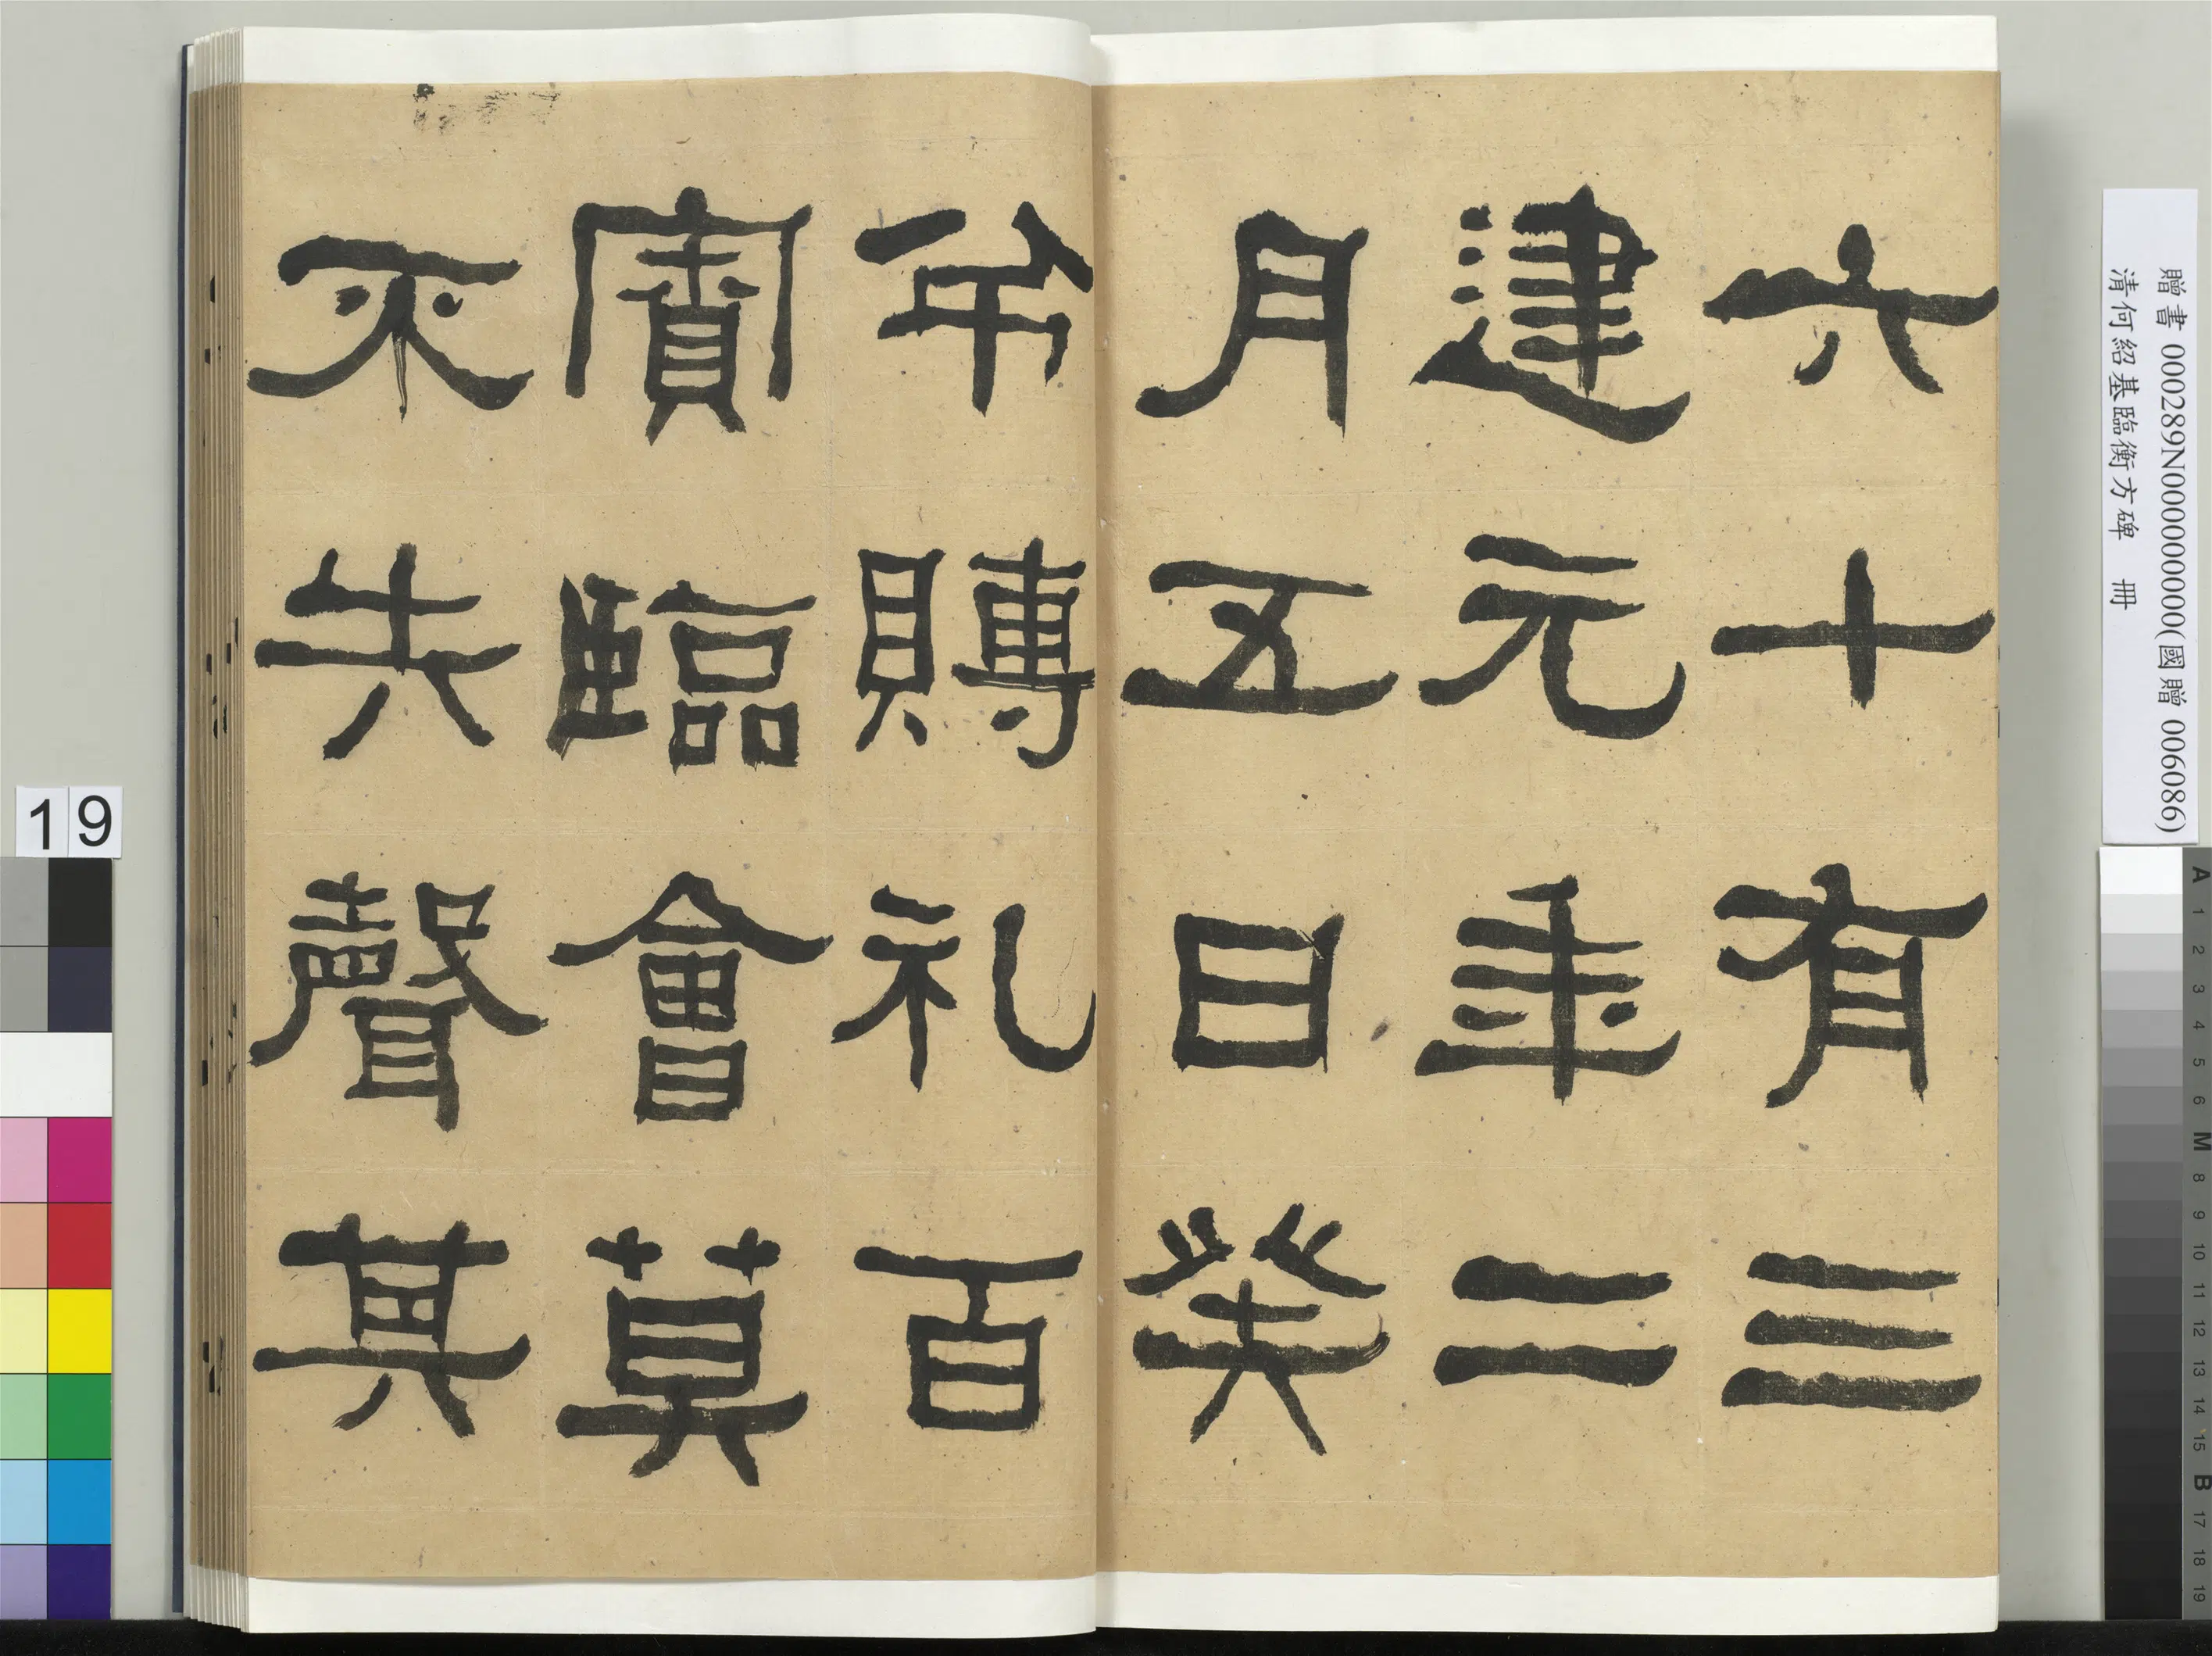 六十有三
建元年二
月五日癸
弔賻礼百
賓臨會莫
不失聲其
贈書 000289N000000000(國贈 006086)
清何紹基臨衡方碑 冊
19
A 1 2 3 4 5 6 M 8 9 10 11 12 13 14 15 B 17 18 19